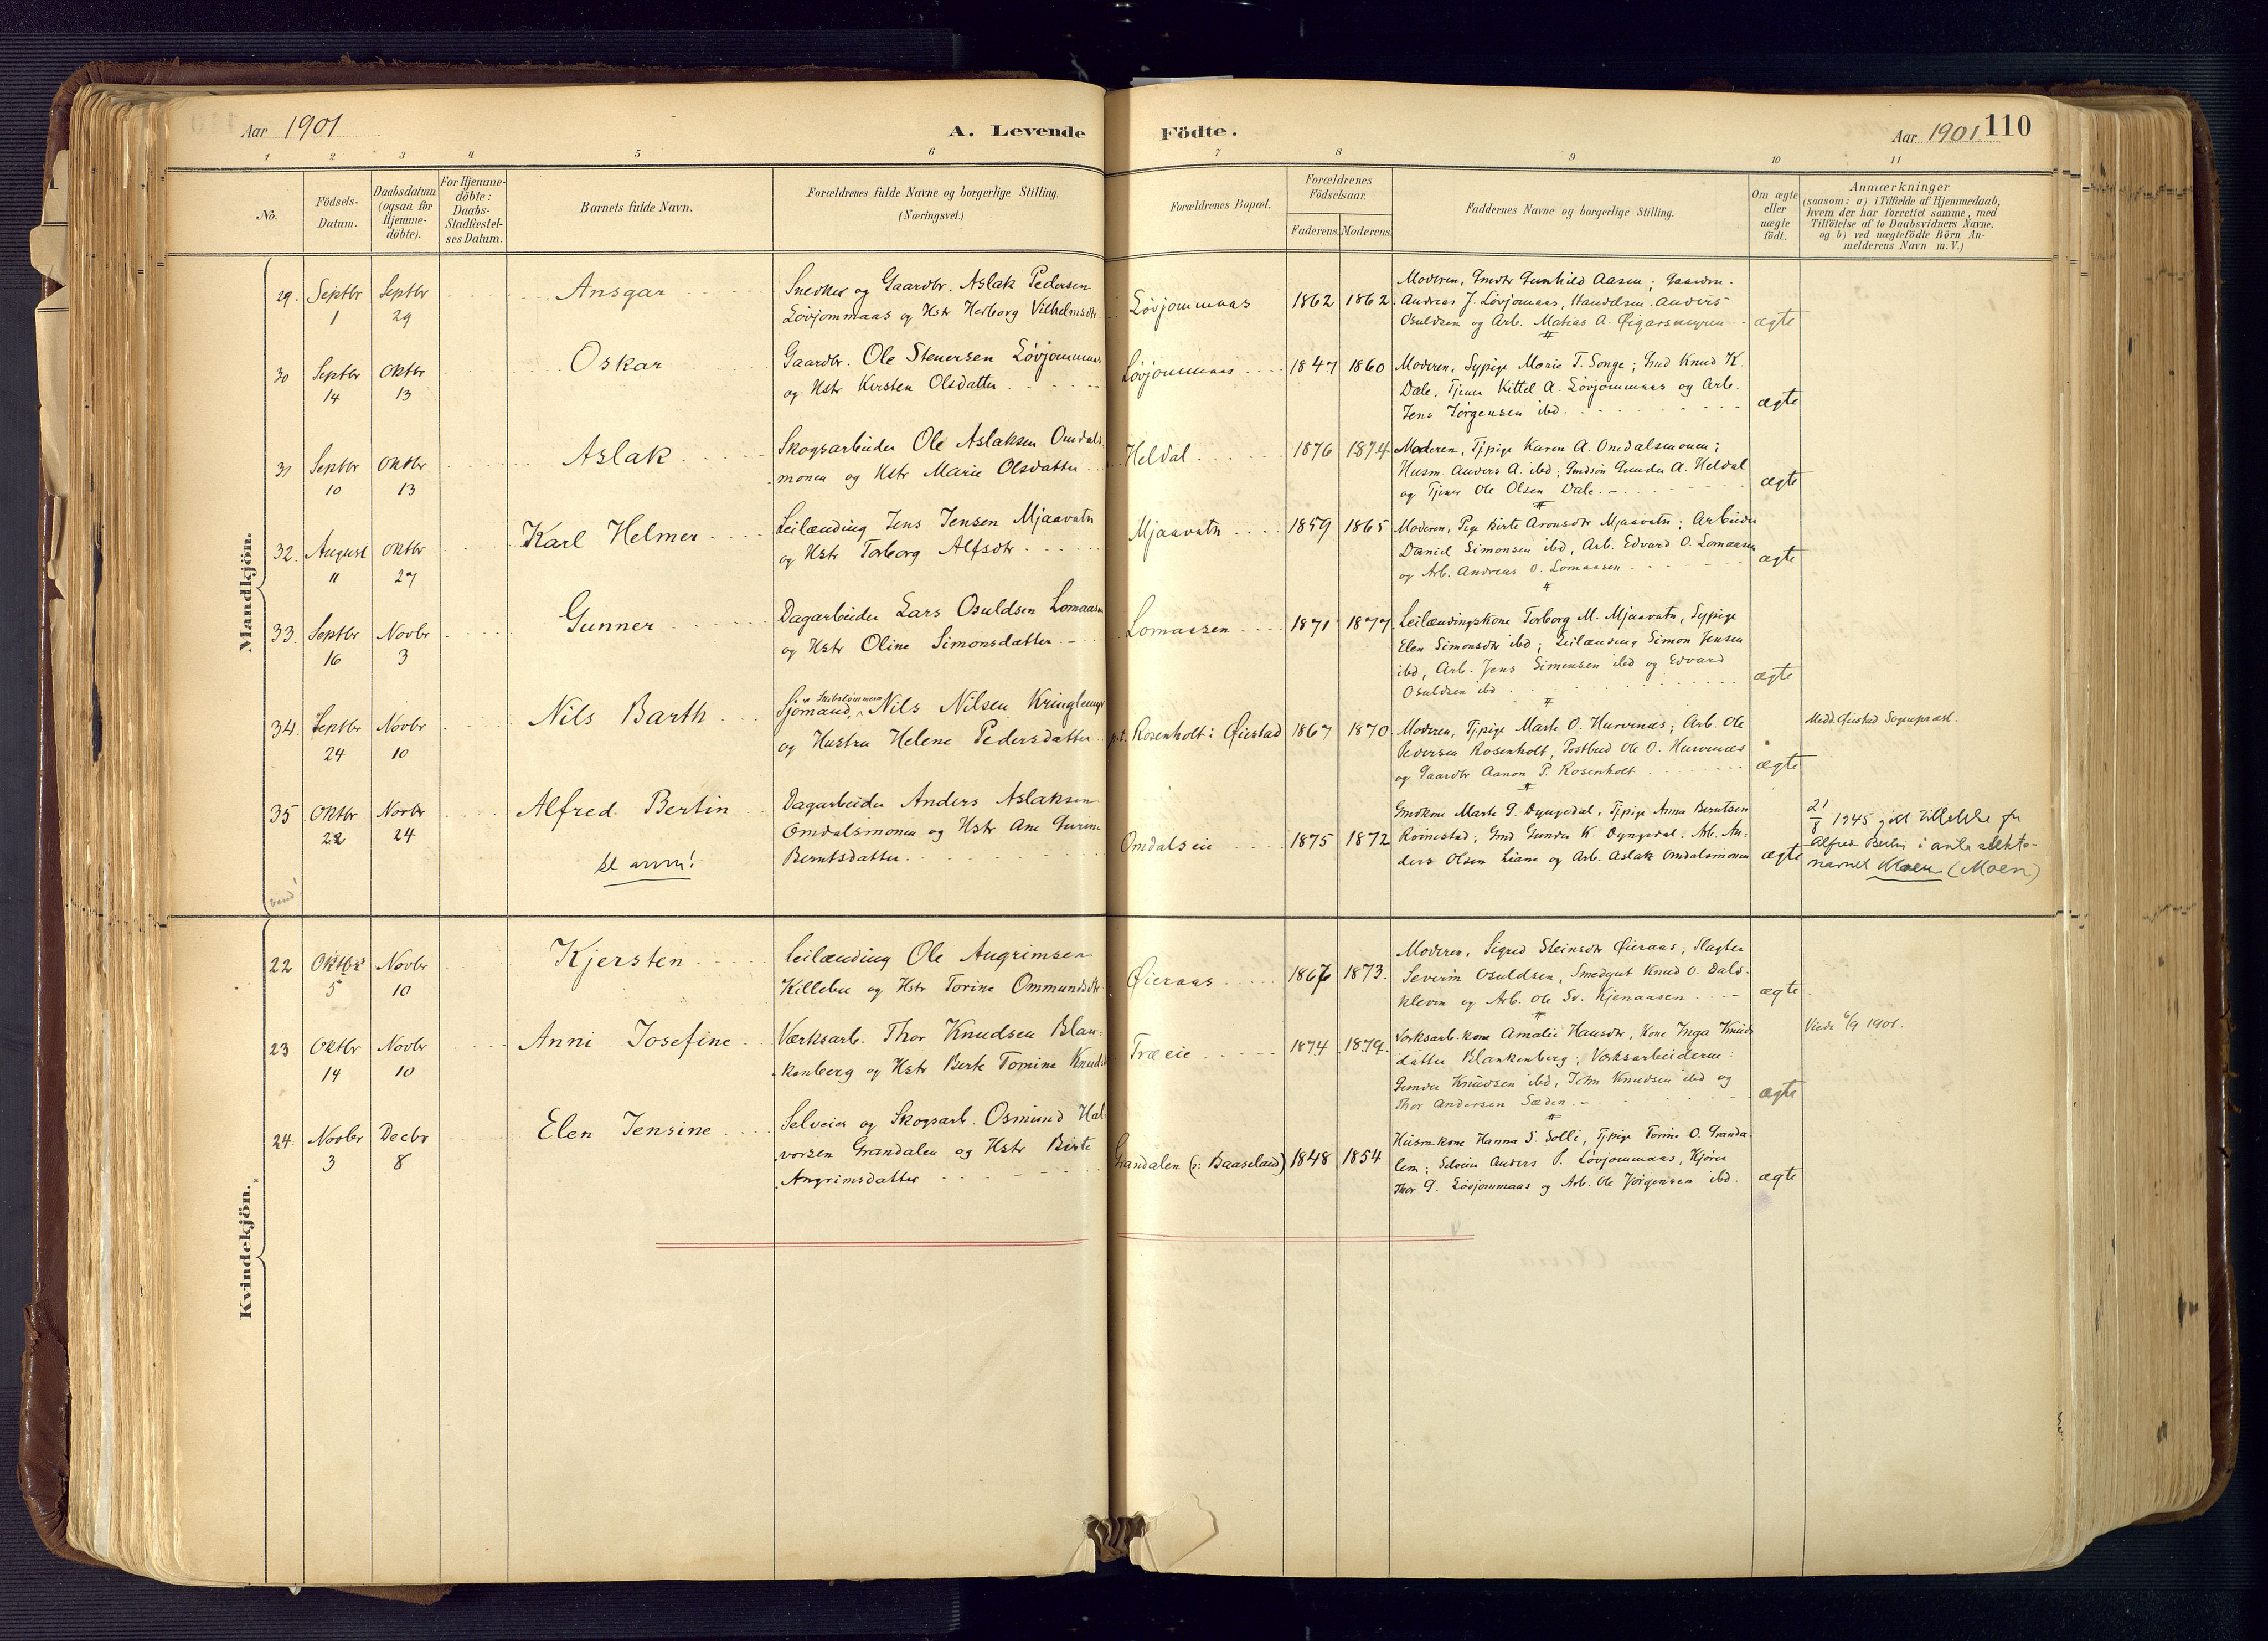 Aar 1901
A. Levende
Födte.
Aar 1901
110
1 2 3 4 5 6 7 8 9 10 11
No.
Födsels-
Datum.
Daabsdatum
(ogsaa for
Hjemme-
döbte).
For Hjemme-
döbte:
Daabs-
Stadfestel-
ses Datum.
Barnets fulde Navn.
Forældrenes fulde Navne og borgerlige Stilling.
(Næringsvei.)
Forældrenes Bopæl.
Forældrenes
Födselsaar.
Faderens. Moderens.
Faddernes Navne og borgerlige Stilling.
Om ægte
eller
uægte
födt.
Anmærkninger
(saasom: a) i Tilfælde af Hjemmedaab,
hvem der har forrettet samme, med
Tilföielse af to Daabsvidners Navne.
og b) ved uægtefödte Börn An-
melderens Navn m.V.)
Mandkjön.
29. Septbr Septbr
1 29
Ansgar
Snedker og Gaardbr. Aslak Pedersen
Løvjommaas og Hstr Herborg Vilhelmsdtr
Løvjommaas
1862 1862
Moderen, Gmdtr Gunhild Aasen; Gaardm.
Andreas J. Løvjomaas, Handelsm. Anders
Osuldsen og Arb. Matias A. Øigarsmyren
ægte
30 Septbr Oktbr
14 13
Oskar
Gaardbr. Ole Stenersen Løvjommaas
og Hstr Kirsten Olsdatter
Løvjommaas
1847 1860
Moderen, Sypige Marie T. Songe; Gmd Knud K.
Dale, Tjener Kittel A. Løvjommaas og Arb.
Jens Jörgensen ibd.
ægte
31 Septbr Oktbr
10 13
Aslak
Skogsarbeider Ole Aslaksen Omdals-
monen og Hstr Marie Olsdatter
Heldal
1876 1874
Moderen, Tjpige Karen A. Omdalsmonen;
Husm. Anders A. ibd; Gmdsön Gunder A. Heldal
og Tjener Ole Olsen Dale.
ægte
32. August Oktbr
11 27
Karl Helmer
Leilænding Jens Jensen Mjaavatn
og Hstr Torborg Alfsdtr
Mjaavatn
1859 1865
Moderen, Pige Birte Aronsdtr Mjaavatn; Arbeider
Daniel Simonsen ibd, Arb. Edvard O. Lomaasen
og Arb. Andreas O. Lomaasen
ægte
33. Septbr Novbr
16 3
Gunner
Dagarbeider Lars Osuldsen Lomaasen
og Hstr Oline Simonsdatter
Lomaasen
1871 1877
Leilændingskone Torborg M. Mjaavatn, Sypige
Elen Simonsdtr ibd; Leilænding Simon Jensen
ibd, Arb. Jens Simonsen ibd og Edvard
Osuldsen ibd
ægte
34. Septbr Novbr
24 10
Nils Barth
Sjømand, Nils Nilsen
og Hustru Helene Pedersdatter
p.t. Rosenholt i Øiestad
1867 1870
Moderen, Tjpige Marte O. Hurvenæs; Arb. Ole
Pedersen Rosenholt, Postbud Ole O. Hurvenæs
og Gaardbr Aanon P. Rosenholt
ægte
Medd. Øiestad Sogneprest.
35 Oktbr Novbr
22 24
Alfred Bertin
se anm!
Dagarbeider Anders Aslaksen
Omdalsmonen og Hstr Ane Gurine
Berntsdatter.
Omdalseie
1875 1872
Gmdkone Marte G. Dyngedal, Tjpige Anna Berntsen
Roinestad; Gmd Gunder K. Dyngedal. Arb. An-
ders Olsen Liane og Arb. Aslak Omdalsmonen
ægte
21/8 1945 gitt tillatelse for
Alfred Bertin i anta slekts-
navnet Moen (Moen)
Kvindekjön.
22 Oktbr Novbr
5 10
Kjersten
Leilænding Ole Angrimsen
Killebu og Hstr Torine Ommundsdtr
Øieraas
1867 1873
Moderen, Sigrid Steinsdtr Øieraas; Slagter
Severin Osuldsen, Smedgut Knud O. Dals-
kleven og Arb. Ole Sv. Kjenaasen
ægte
23 Oktbr Novbr
14 10
Anni Josefine
Værksarb. Thor Knudsen Blan-
kenberg og Hstr Berte Tomine Knudsd
Træeie
1874 1879
Værksarb.kone Amalie Hansdtr, Kone Inga Knuds
datter Blankenberg; Værksarbeiderne:
Gunder Knudsen ibd, John Knudsen ibd og
Thor Andersen Sæden.
ægte
Viede 6/9 1901.
24. Novbr Decbr
3 8
Elen Jensine
Selveier og Skogsarb. Osmund Hal-
vorsen Grandalen og Hstr Birte
Angrimsdatter
Grandalen (: Baaseland)
1848 1854
Husm.kone Hanna S. Solli, Tjpige Torine O. Granda-
len; Selveier Anders P. Løvjommaas, Kjører
Thor G. Løvjommaas og Arb. Ole Jörgensen ibd.
ægte